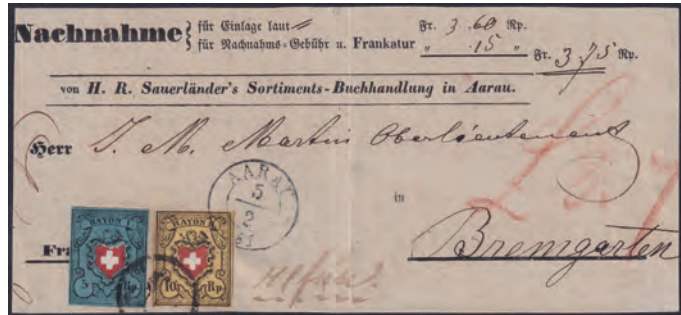 Nachnahme { für Einlage laut Fr. 3.60 Rp.
für Nachnahms-Gebühr u. Frankatur „ .15 „ Fr. 3.75 Rp.
von H. R. Sauerländer's Sortiments-Buchhandlung in Aarau.
Herr J. M. Martin Oberlieutenant
in
Bremgarten
AARAU
5
2
RAYON I.
5 Rp.
RAYON
10 Rp.
Fra